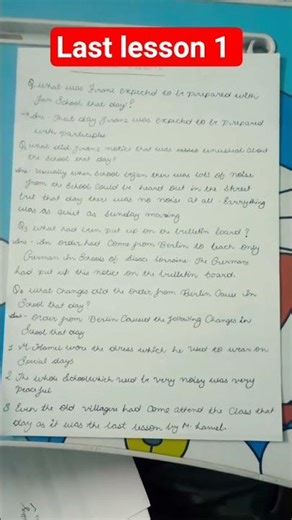 Last lesson 1
Q. What was Franz expected to be prepared with
for School that day?
Ans - That day Franz was expected to be prepared
with participle
Q. what did Franz notice that was unusual about
the School that day?
Ans - Usually when School began there was lots of noise
from the School could be heard out in the Street
but that day there was no noise at all. Everything
was as quiet as Sunday morning
Q3 what had been put up on the bulletin board?
Ans - An order had come from Berlin to teach only
German in Schools of Alsace Lorraine. The Germans
had put up this notice on the bulletin board.
Q4 what changes did the order from Berlin Cause In
School that day?
Ans - Order from Berlin Caused the following Changes in
School that day
1 M. Hamel wore the dress which he used to wear on
Special days
2 The whole School which used to very noisy was very
peaceful
3 Even the old villagers had come attend the Class that
day as it was the last lesson by M. Hamel.